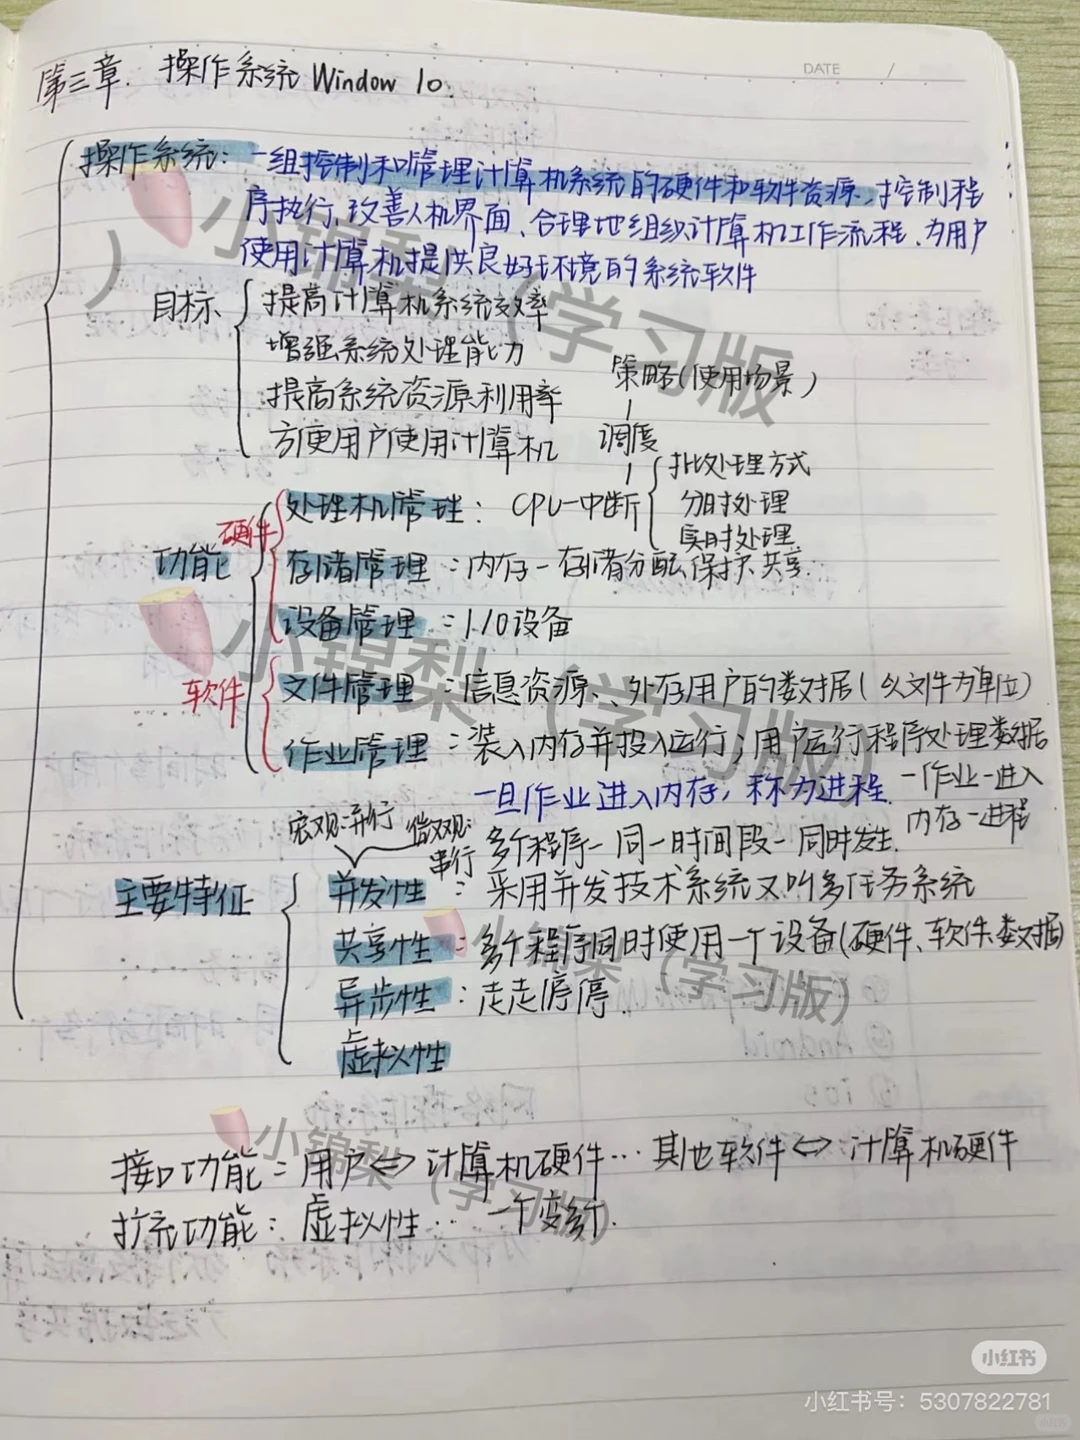 DATE /
第三章. 操作系统 Window 10.
操作系统: 一组控制和管理计算机系统的硬件和软件资源, 控制程
序执行, 改善人机界面、合理地组织计算机工作流程、为用户
使用计算机提供良好环境的系统软件
目标
提高计算机系统效率
增强系统处理能力
提高系统资源利用率
方便用户使用计算机
策略(使用场景)
调度
功能
硬件
处理机管理: CPU-中断
批处理方式
分时处理
实时处理
存储管理: 内存-存储分配、保护、共享.
设备管理: I/O设备
软件
文件管理: 信息资源、外存用户的数据(以文件为单位)
作业管理: 装入内存并投入运行; 用户运行程序处理数据
一旦作业进入内存, 称为进程.
一作业-进入
内存-进程
宏观:并行 微观:
串行
多个程序-同一时间段-同时发生.
主要特征
并发性: 采用并发技术系统又叫多任务系统
共享性: 多个程序同时使用一个设备(硬件、软件、数据)
异步性: 走走停停.
虚拟性
接口功能: 用户⇔计算机硬件… 其他软件⇔计算机硬件
扩充功能: 虚拟性… 一个变多个.
小锦梨(学习版)
小锦梨(学习版)
小锦梨(学习版)
小锦梨(学习版)
小红书
小红书号: 5307822781